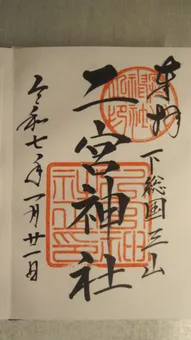 奉拝
下総国三山
二宮神社
令和七年一月廿一日